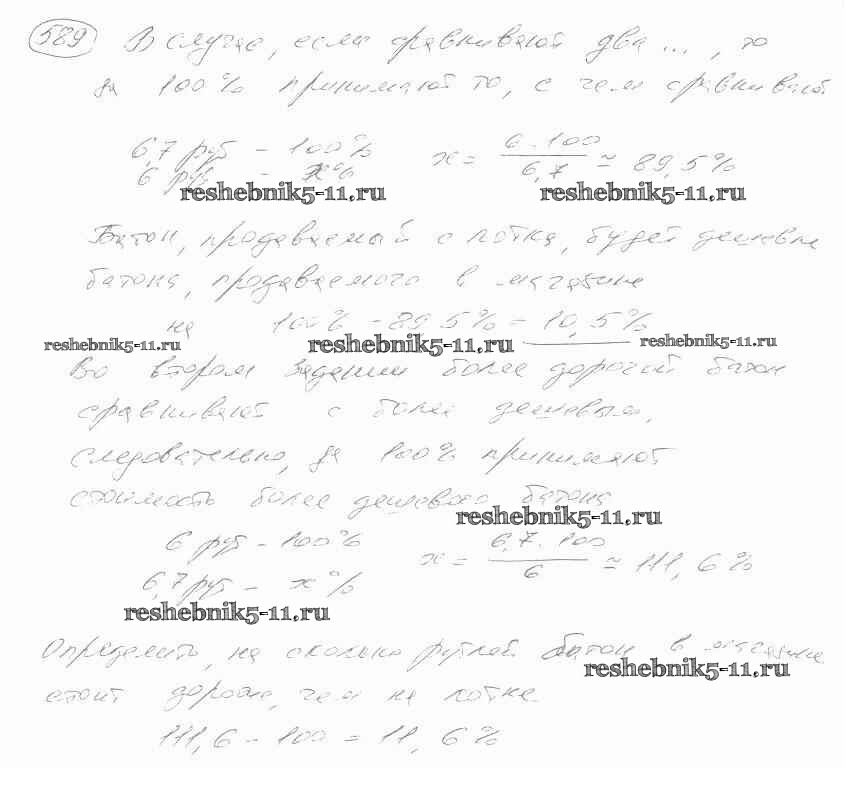 589 В случае, если сравнивают два ..., то
за 100% принимают то, с чем сравнивают
6,7 руб - 100% x = 6 · 100 / 6,7 ≈ 89,5%
6 руб - x%
reshebnik5-11.ru reshebnik5-11.ru
Батон, продаваемый с лотка, будет дешевле
батона, продаваемого в магазине
на 100% - 89,5% = 10,5%
reshebnik5-11.ru reshebnik5-11.ru reshebnik5-11.ru
Во втором задании более дорогой батон
сравнивают с более дешевым,
следовательно, за 100% принимают
стоимость более дешевого батона
reshebnik5-11.ru
6 руб - 100% x = 6,7 · 100 / 6 ≈ 111,6%
6,7 руб - x%
reshebnik5-11.ru
Определить, на сколько рублей батон в магазине
reshebnik5-11.ru
стоит дороже, чем на лотке.
111,6 - 100 = 11,6%